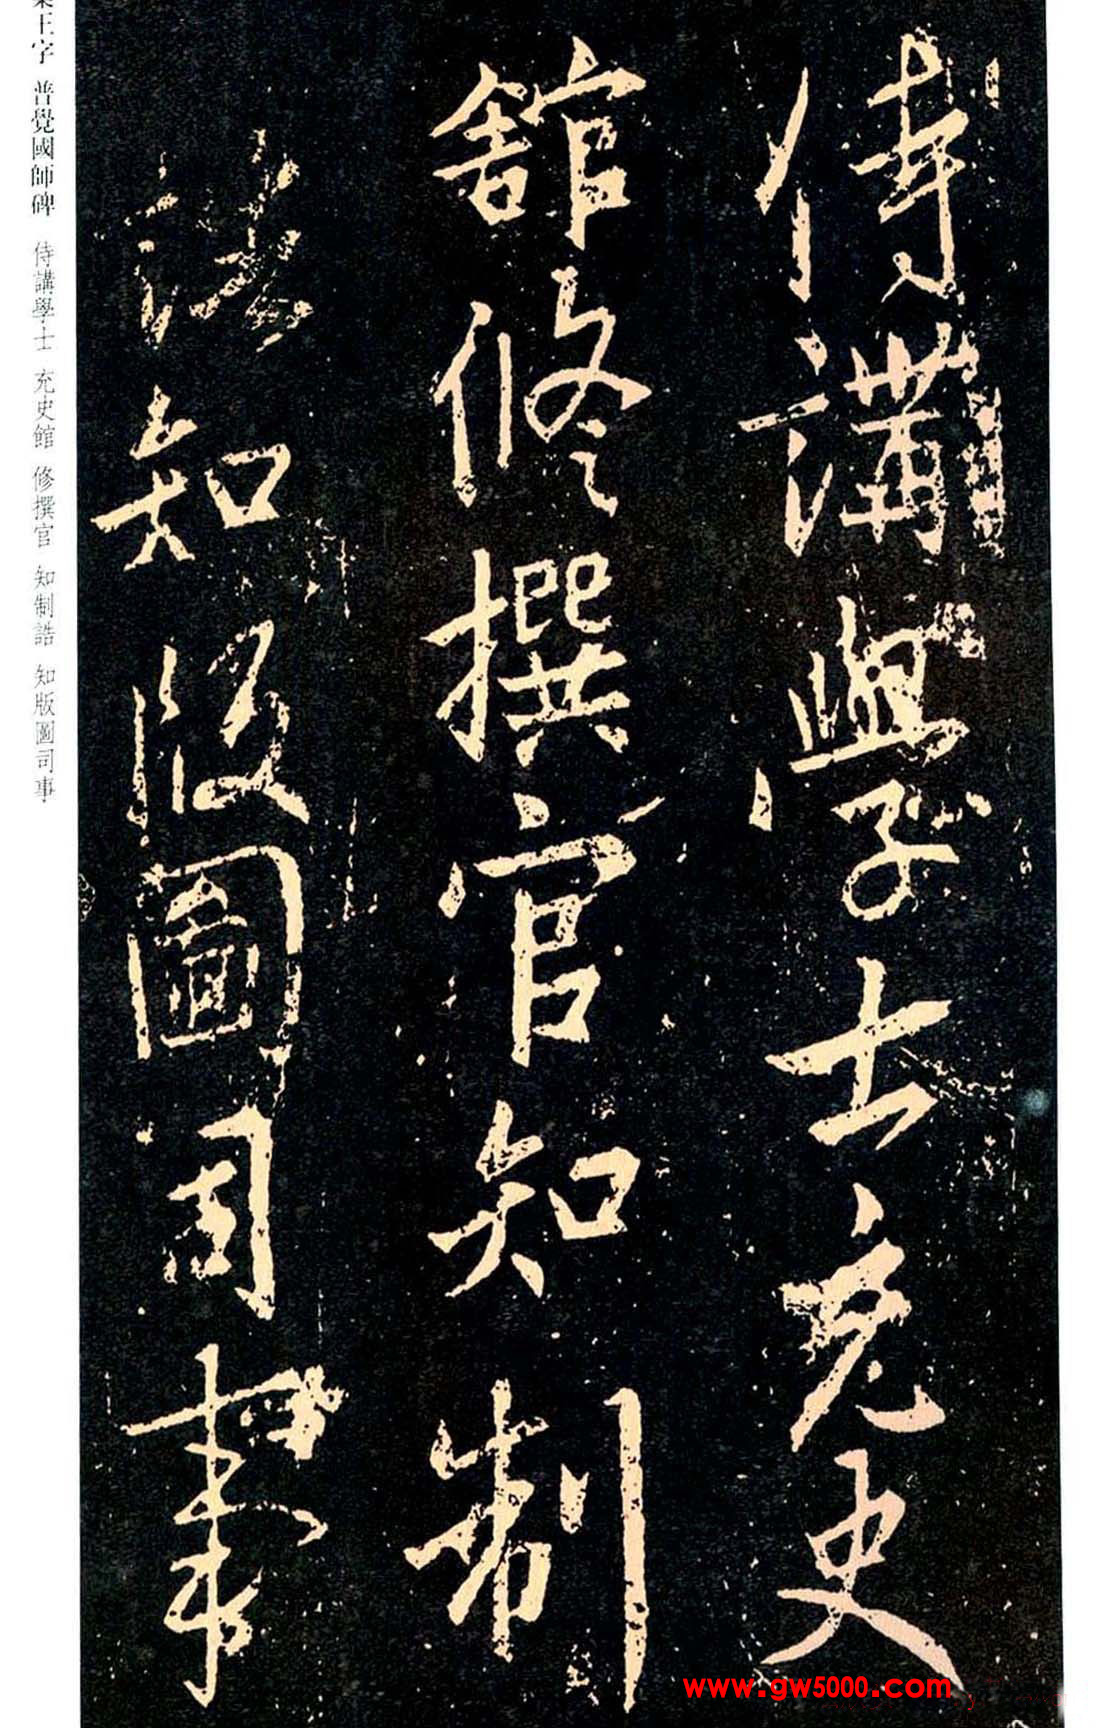 侍講學士充史
舘修撰官知制
誥知版圖司事
王字 普覺國師碑 侍講學士 充史館 修撰官 知制誥 知版圖司事
www.gw5000.com